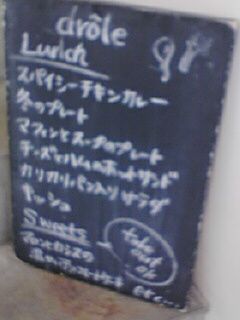 drôle
Lunch
スパイシーチキンカレー
冬のプレート
マフィンとスープのプレート
チーズとハムのホットサンド
カリカリパン入りサラダ
キッシュ
Sweets
take
out
ok
etc...